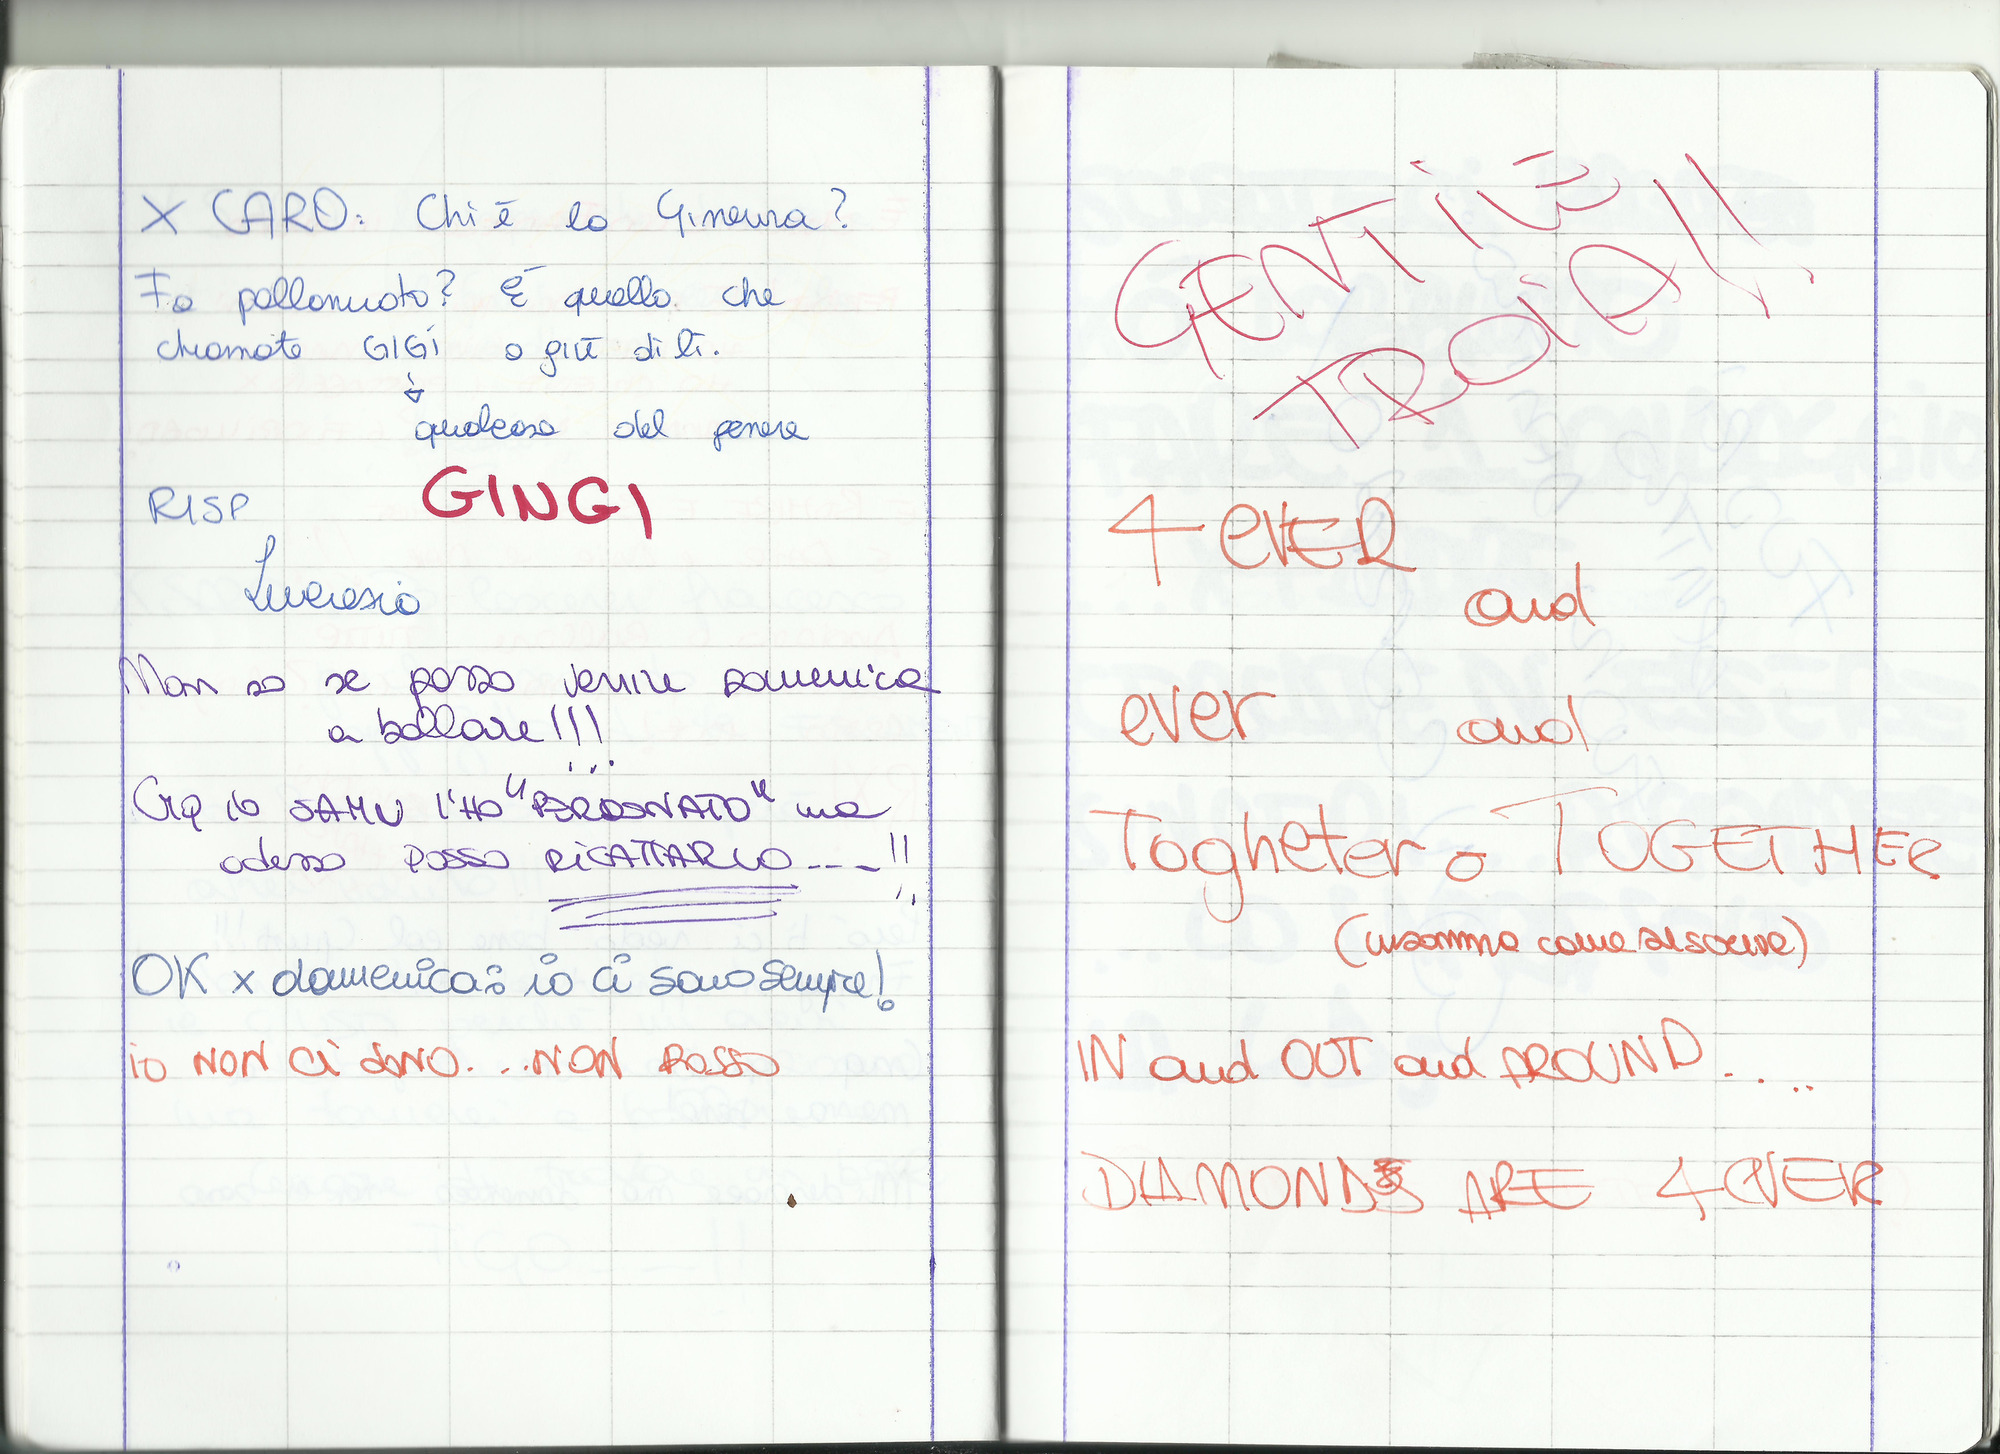 X CARO: Chi è la Ginevra?
Fa pallanuoto? È quella che
chiamate GIGI o giù di lì.
↓
qualcosa del genere
GINGI
RISP
Lucrezia
Non so se posso venire domenica
a ballare!!!
...
Cmq io SAMU l'HO "PERDONATO" ma
adesso posso RICATTARLO ---!!
OK x domenica: io ci sono sempre!
io NON ci sono...NON POSSO
GENTILE
TROIA!!
4 EVER
and
ever and
Togheter o TOGETHER
(insomma come si scrive)
IN and OUT and AROUND....
DIAMONDS ARE 4 EVER